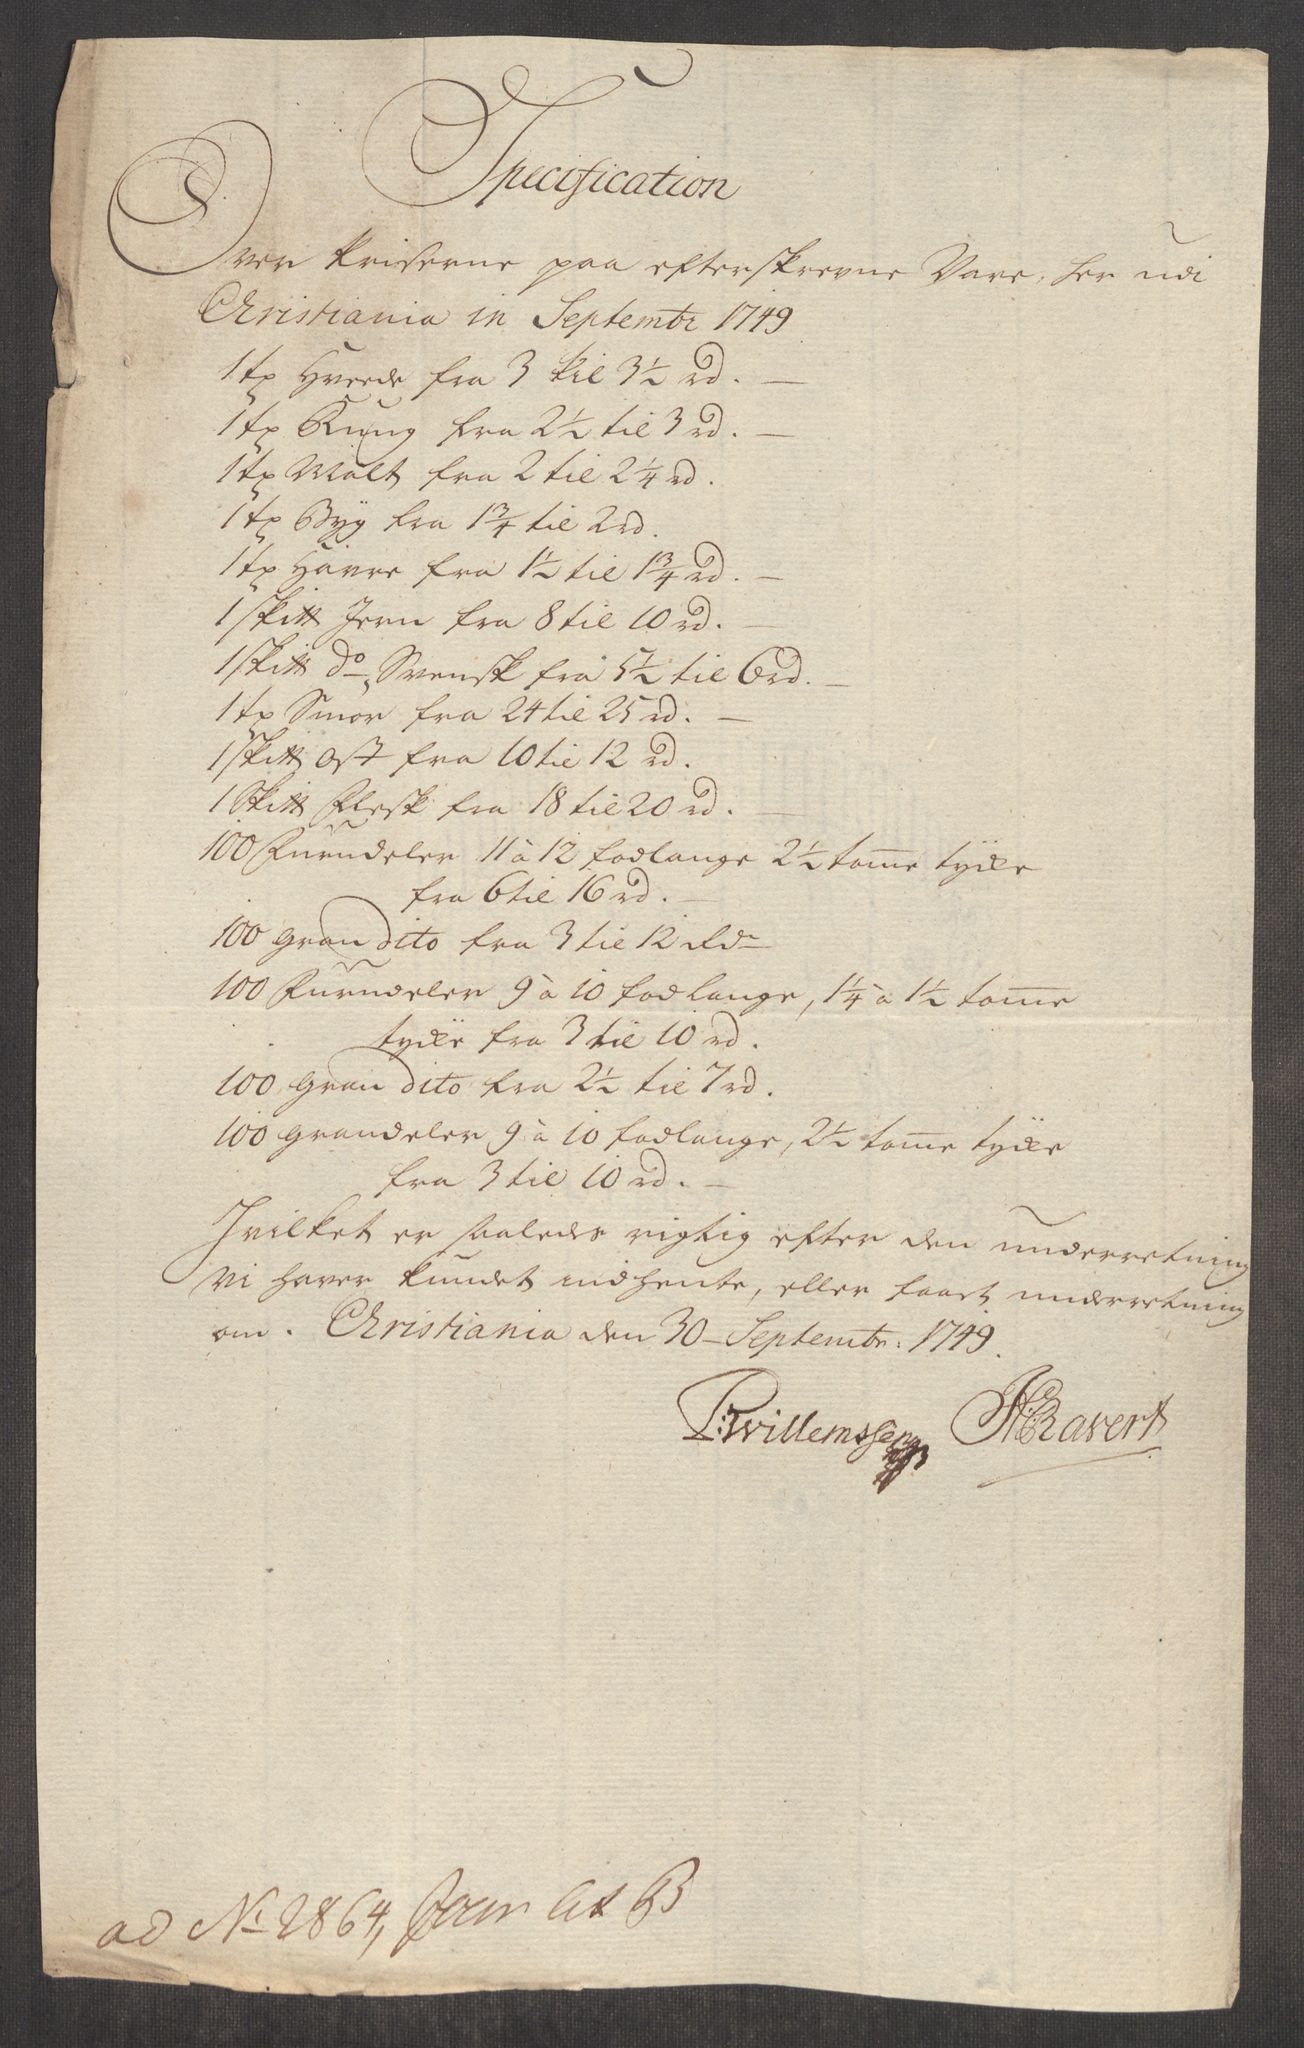 Specification
Over Priserne paa efterskrevne Vare, her udi
Christiania in Septembr 1749
1 tn Hvede fra 3 til 3½ rd. —
1 tn Rüug fra 2½ til 3 rd. —
1 tn Malt fra 2 til 2¼ rd.
1 tn Byg fra 1¾ til 2 rd.
1 tn Havre fra 1½ til 1¾ rd. —
1 sk℔ Jern fra 8 til 10 rd. —
1 sk℔ do Svensk fra 5½ til 6 rd. —
1 tn Smør fra 24 til 25 rd. —
1 sk℔ Ost fra 10 til 12 rd.
1 Sk℔ Flesk fra 18 til 20 rd. —
100 Furudeler 11 à 12 fod lange 2½ tom̄e tycke
fra 6 til 16 rd. —
100 Gran dito fra 3 til 12 Rdr
100 Furudeler 9 à 10 fod lange, 1¼ à 1½ tom̄e
tycke fra 3 til 10 rd.
100 Gran dito fra 2½ til 7 rd.
100 Grandeler 9 à 10 fod lange, 2½ tom̄e tycke
fra 3 til 10 rd. —
Hvilket er saaledes rigtig efter den underretning
vi haver kundet indhente, eller faaet underretning
om. Christiania den 30 – Septembr: 1749.
P: Willemssen Ravert
ad No 2864, Jour Lit B